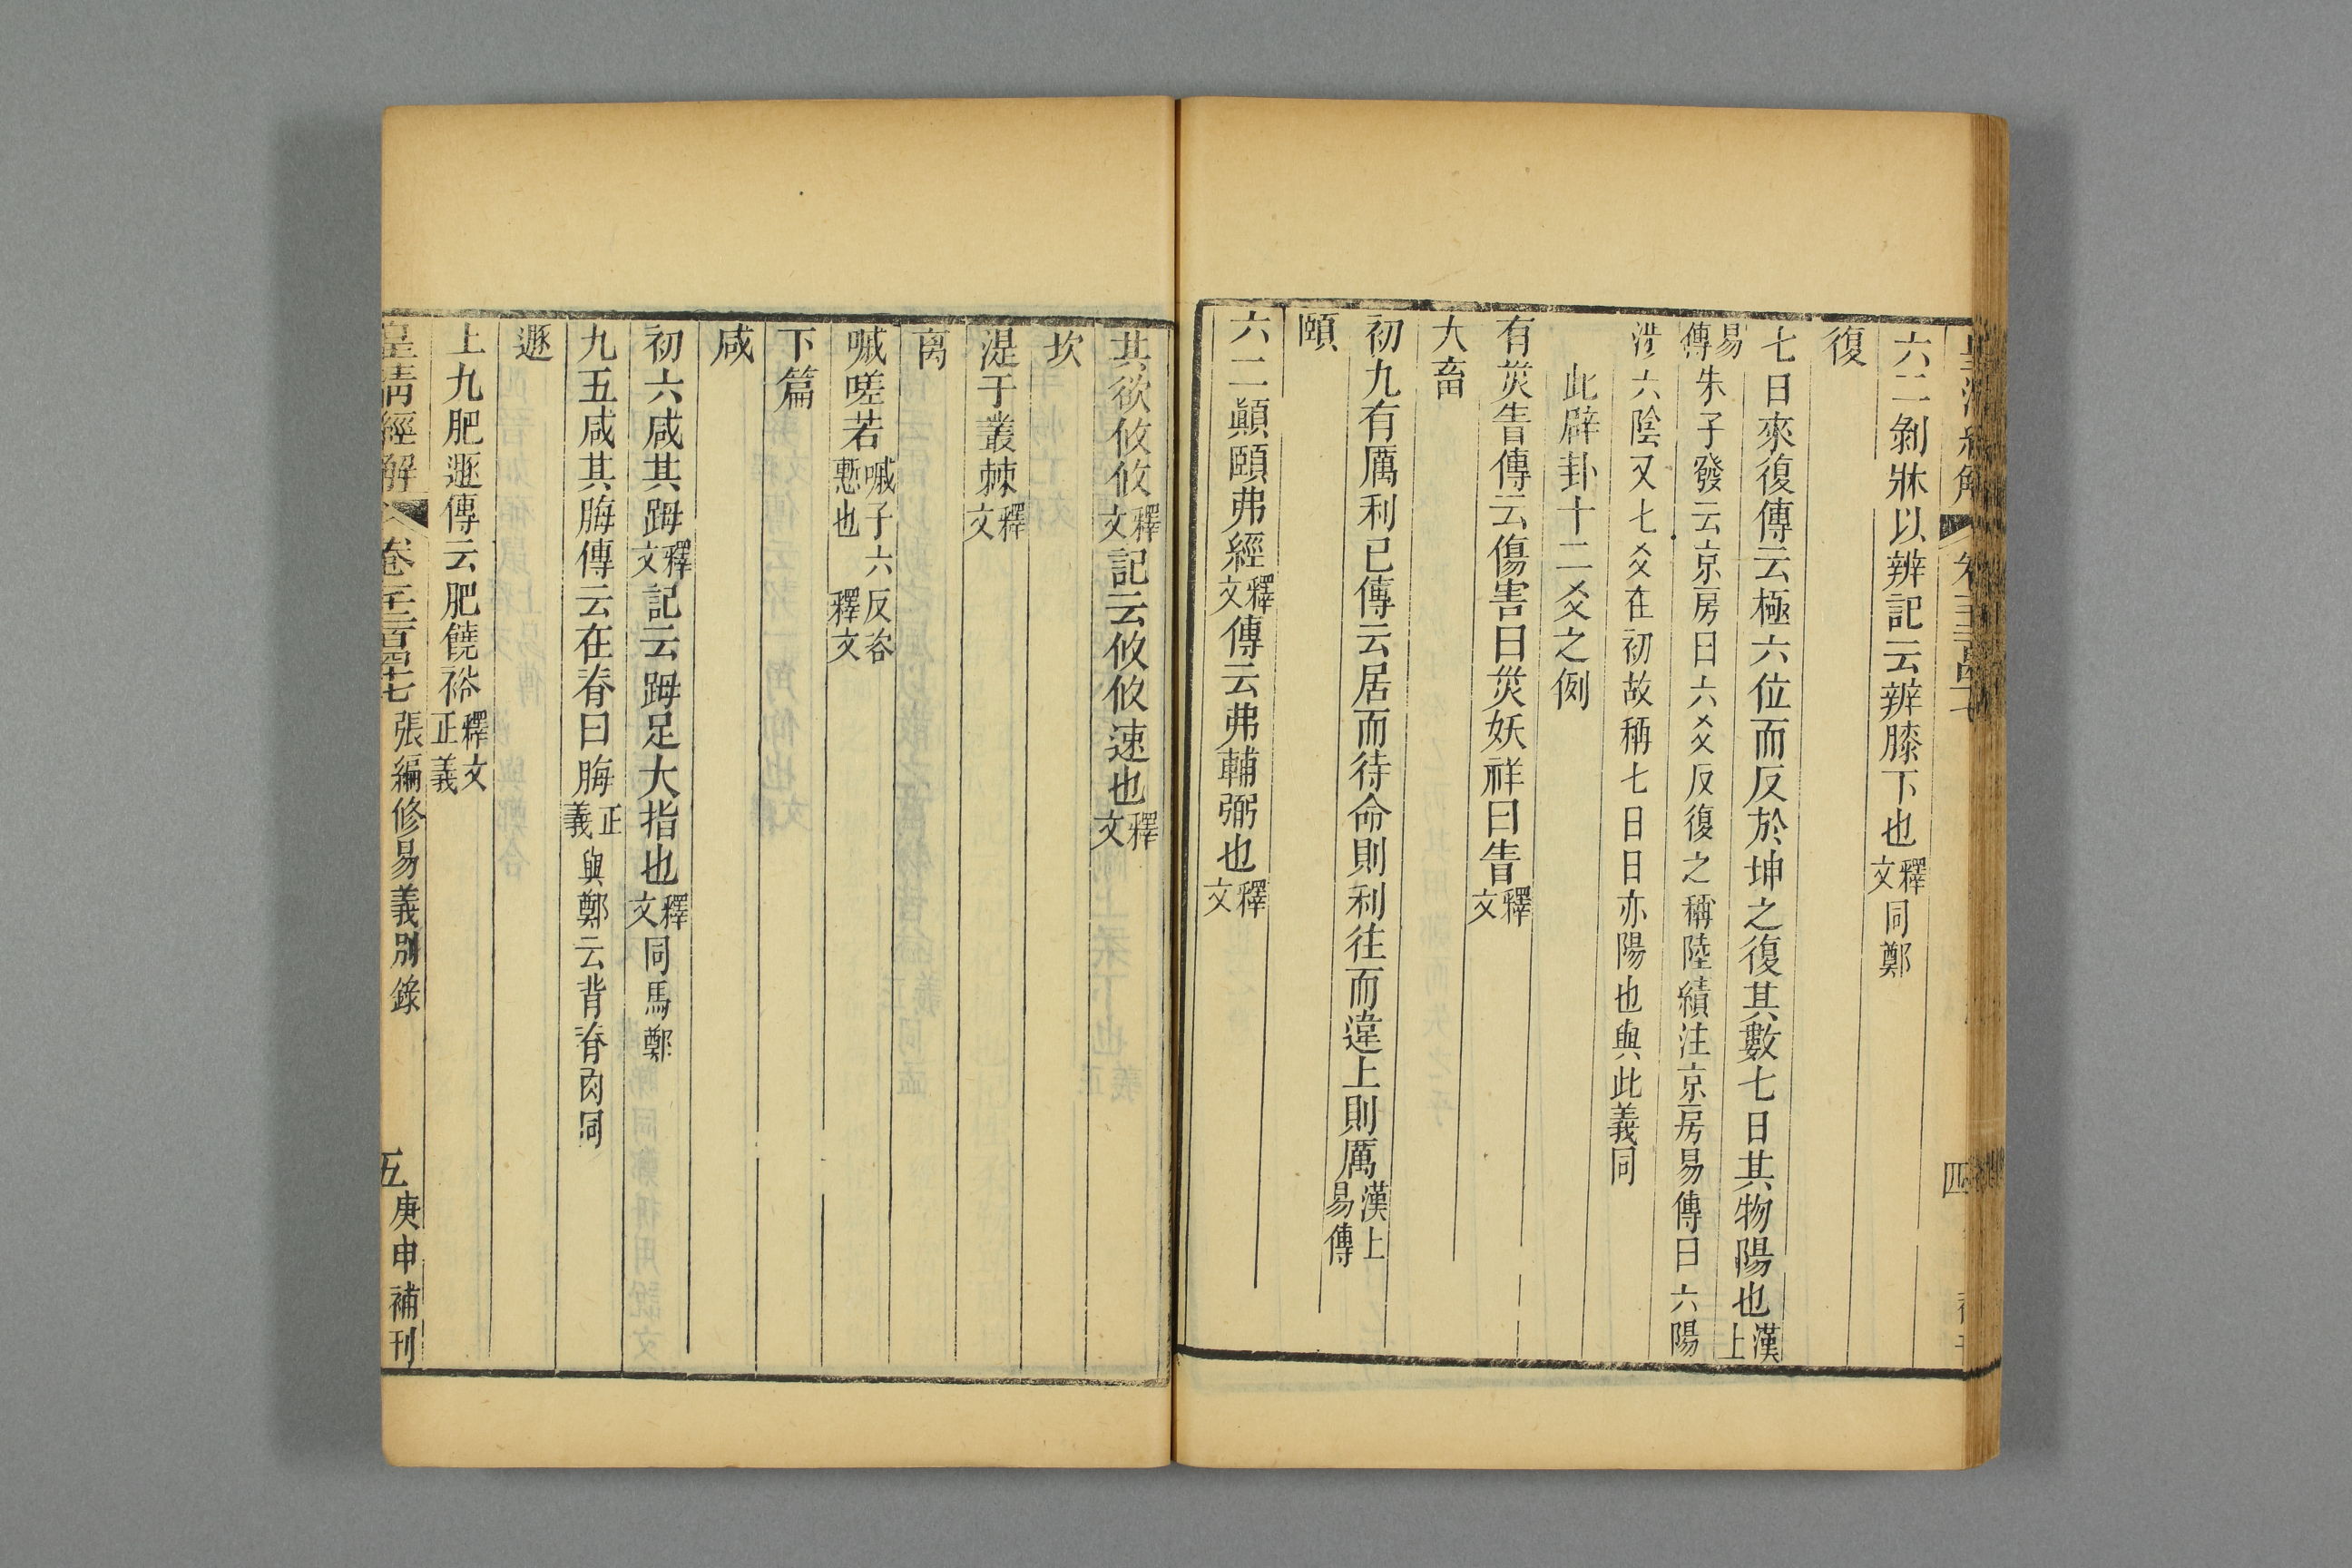 六二剝牀以辨記云辨膝下也釋文同鄭
復
七日來復傳云極六位而反於坤之復其數七日其物陽也漢上
易傳朱子發云京房曰六爻反復之稱陸績注京房易傳曰六陽
涉六陰又七爻在初故稱七日日亦陽也與此義同
此辟卦十二爻之例
有災眚傳云傷害曰災妖祥曰眚釋文
大畜
初九有厲利已傳云居而待命則利往而違上則厲漢上易傳
頤
六二顛頤弗經釋文傳云弗輔弼也釋文
其欲攸攸釋文記云攸攸速也釋文
坎
湜于叢棘釋文
离
嘁嗟若嘁子六反咨慙也釋文
下篇
咸
初六咸其䟦釋文記云䟦足大指也釋文同馬鄭
九五咸其脢傳云在脊曰脢正義與鄭云背脊肉同
遯
上九肥遯傳云肥饒裕釋文正義
皇清經解 卷一千二百四十七 張編修易義別錄 五 庚申補刊